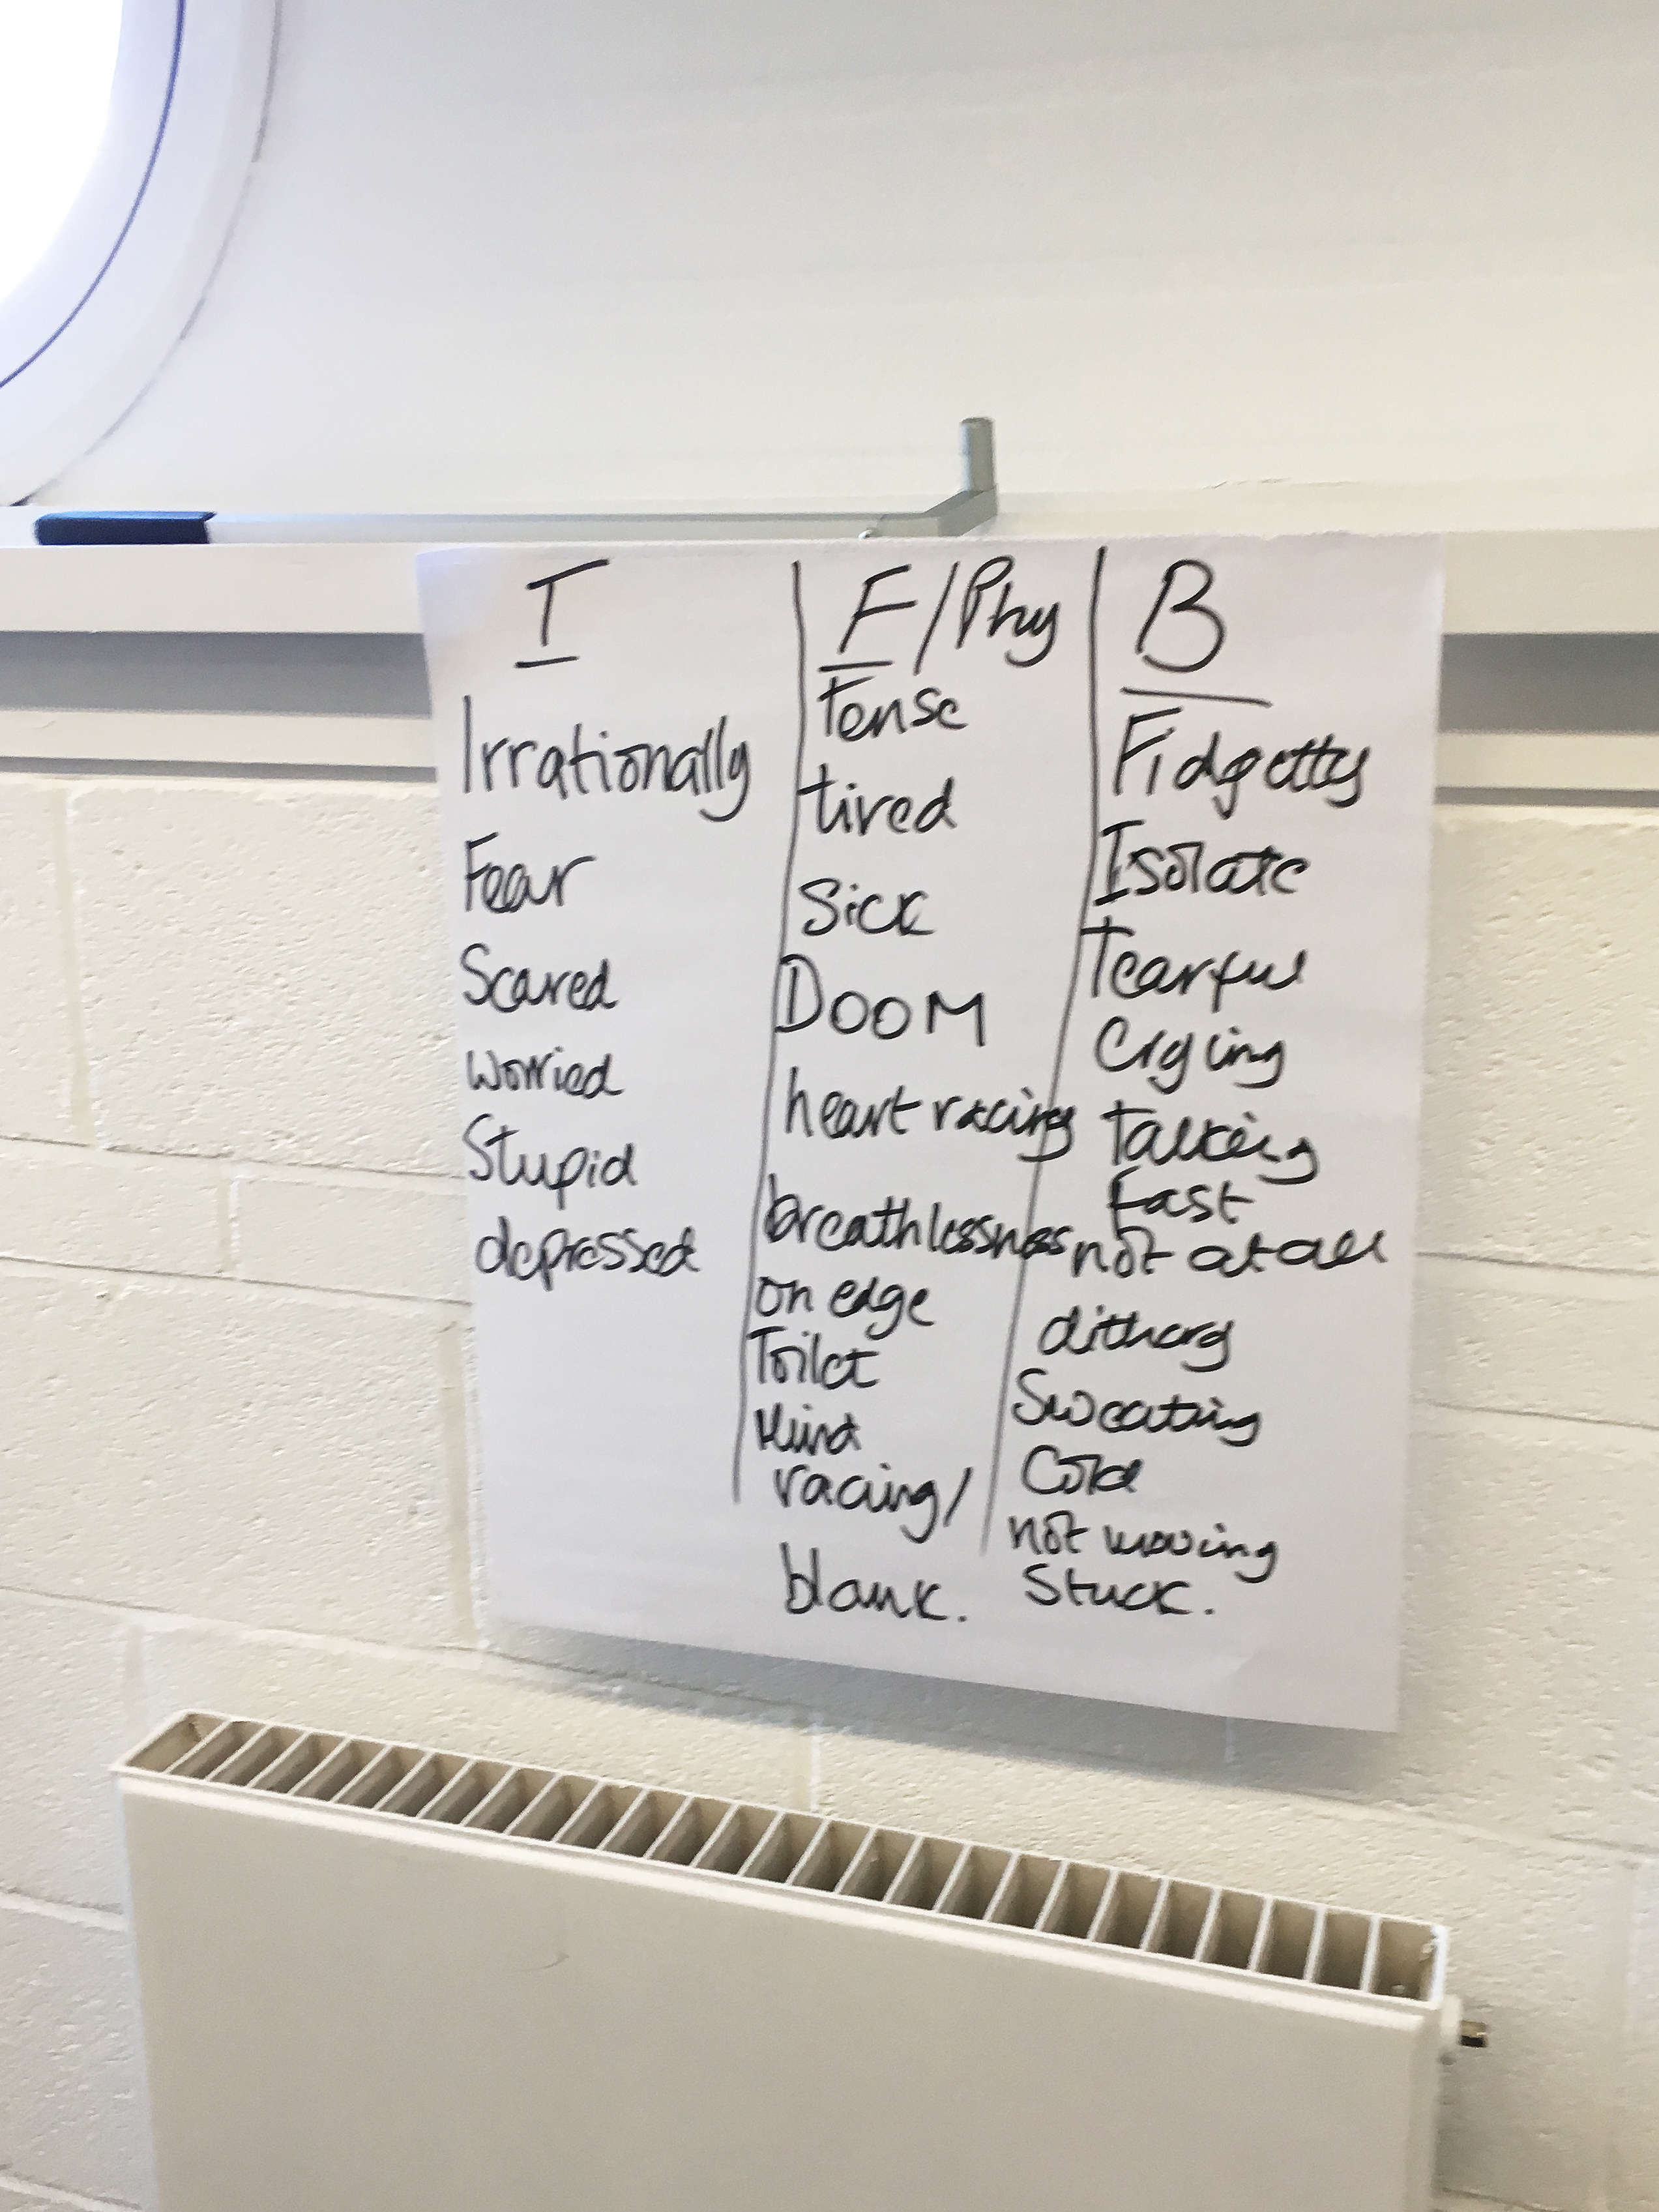 T
Irrationally
Fear
Scared
worried
Stupid
depressed
F/Phy
Tense
tired
Sick
DOOM
heart racing
breathlessness
on edge
Toilet
Mind
racing/
blank.
B
Fidgetty
Isolate
Tearful
Crying
Talking
Fast
not at all
dithering
Sweating
Cold
not moving
Stuck.